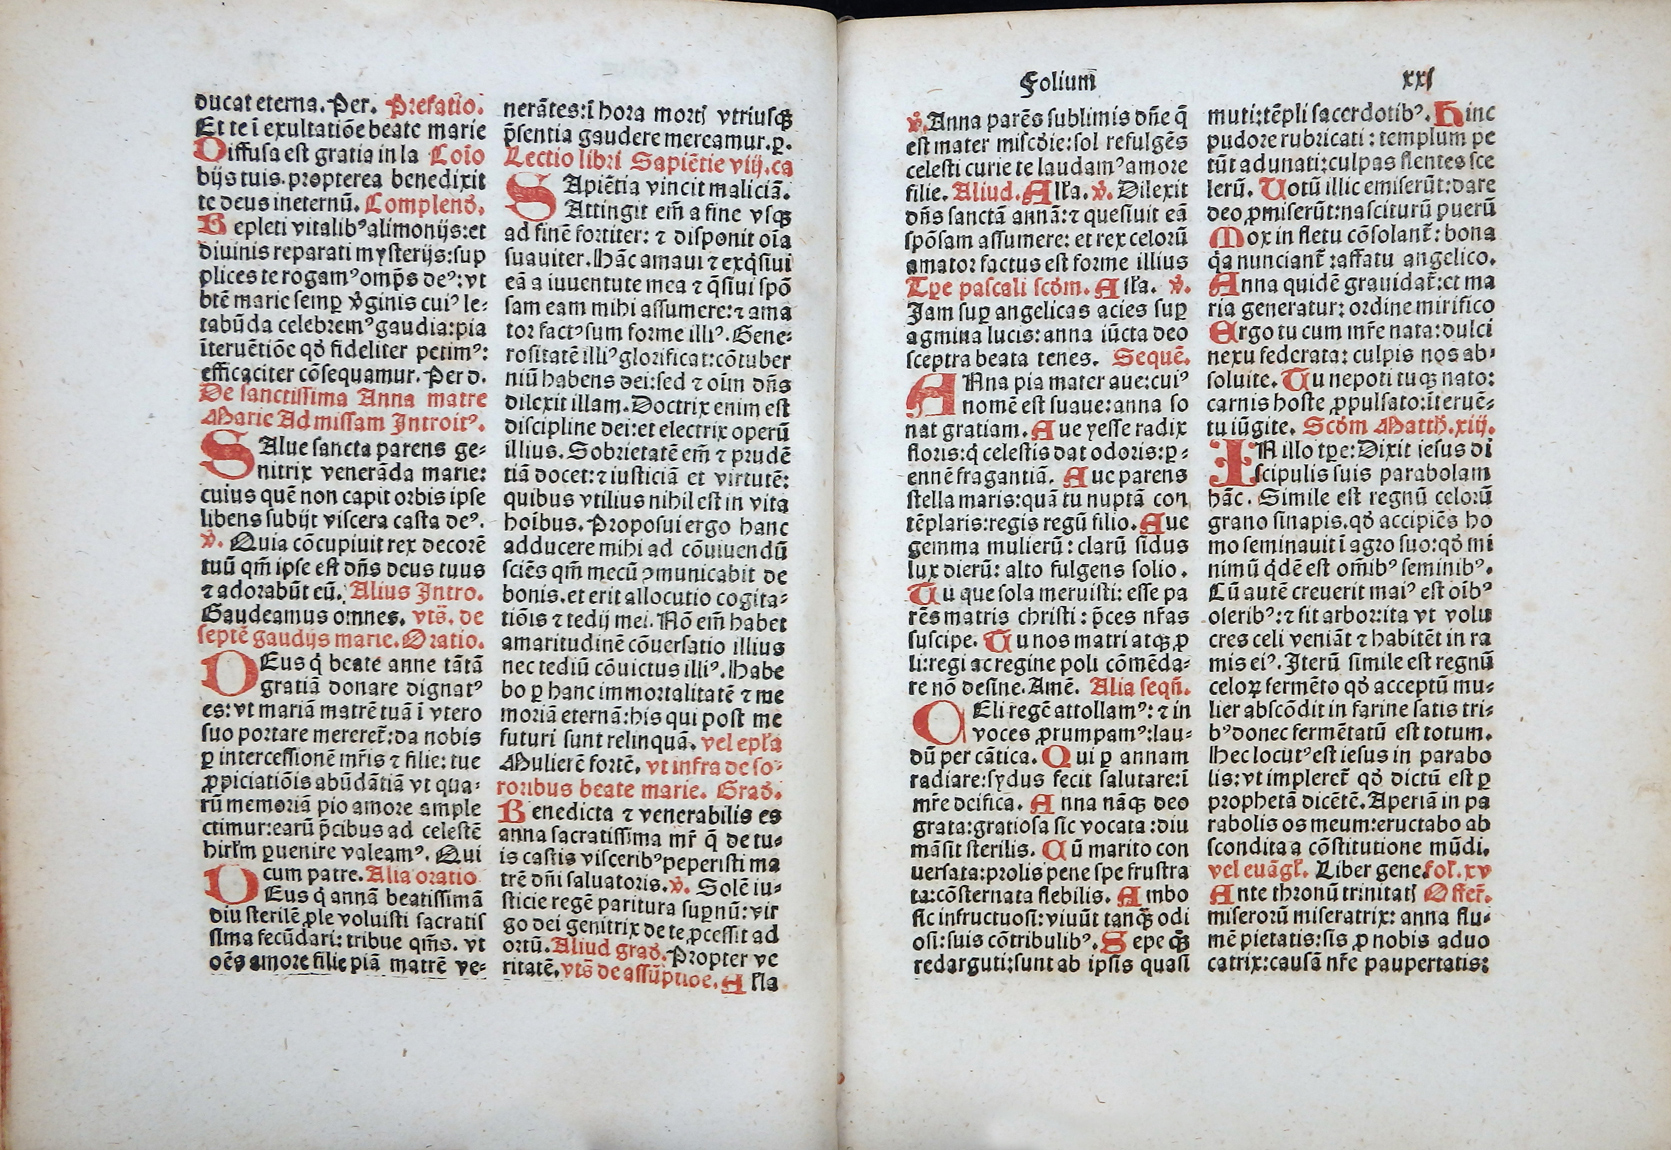 ducat eterna. Per. Prefatio.
Et te ī exultatiōe beate marie
Diffusa est gratia in la Cōio
bijs tuis. propterea benedixit
te deus ineternū. Complend̄.
Repleti vitalibꝰ alimonijs: et
diuinis reparati mysterijs: sup
plices te rogamꝰ omp̄s deꝰ: vt
btē marie semꝑ v̄ginis cuiꝰ le⸗
tabūda celebremꝰ gaudia: pia
īteruētiōe qd̄ fideliter petimꝰ:
efficaciter cōsequamur. Per d.
De sanctissima Anna matre
Marie Ad missam Introitꝰ.
SAlue sancta parens ge⸗
nitrix venerāda marie:
cuius quē non capit orbis ipse
libens subijt viscera casta deꝰ.
v̄. Quia cōcupiuit rex decorē
tuū qm̄ ipse est dn̄s deus tuus
⁊ adorabūt eū. Alius Intro.
Gaudeamus omnes. vts̄. de
septē gaudijs marie. Oratio.
DEus q̇ beate anne tātā
gratiā donare dignatꝰ
es: vt mariā matrē tuā ī vtero
suo portare mereret̄: da nobis
ꝑ intercessionē mr̄is ⁊ filie: tue
ꝓpiciatiōis abūdātiā vt qua⸗
rū memoriā pio amore ample
ctimur: earū p̄cibus ad celestē
hirl̄m ꝑuenire valeamꝰ. Qui
cum patre. Alia oratio
DEus q̇ annā beatissimā
diu sterilē ꝓle voluisti sacratis
sima fecūdari: tribue qm̄s. vt
oēs amore filie piā matrē ve⸗
nerātes: ī hora mortꝭ vtriusqꝫ
p̄sentia gaudere mereamur. ꝑ.
Lectio libri Sapiētie viij. ca
SApiētia vincit maliciā.
Attingit em̄ a fine vsqꝫ
ad finē fortiter: ⁊ disponit oīa
suauiter. Hāc amaui ⁊ exq̇siui
eā a iuuentute mea ⁊ q̄siui spō
sam eam mihi assumere: ⁊ ama
tor factꝰ sum forme illiꝰ. Gene⸗
rositatē illiꝰ glorificat: cōtuber
niū habens dei: sed ⁊ oīm dn̄s
dilexit illam. Doctrix enim est
discipline dei: et electrix operū
illius. Sobrietatē em̄ ⁊ prudē
tiā docet: ⁊ iusticiā et virtutē:
quibus vtilius nihil est in vita
hoībus. Proposui ergo hanc
adducere mihi ad cōuiuendū
sciēs qm̄ mecū ꝯmunicabit de
bonis. et erit allocutio cogita⸗
tiōis ⁊ tedij mei. Nō em̄ habet
amaritudinē cōuersatio illius
nec tediū cōuictus illiꝰ. Habe
bo ꝑ hanc immortalitatē ⁊ me
moriā eternā: his qui post me
futuri sunt relinquā. vel epl̄a
Mulierē fortē. vt infra de so⸗
roribus beate marie. Grad̄.
Benedicta ⁊ venerabilis es
anna sacratissima mr̄ q̄ de tu⸗
is castis visceribꝰ peperisti ma
trē dn̄i saluatoris. v̄. Solē iu⸗
sticie regē paritura suꝑnū: vir
go dei genitrix de te ꝓcessit ad
ortū. Aliud grad̄. Propter ve
ritatē. vts̄ de assūptiōe. Alla
Folium xxj
v̄. Anna parēs sublimis dn̄e q̄
est mater misc̄die: sol refulgēs
celesti curie te laudamꝰ amore
filie. Aliud. All'a. v̄. Dilexit
dn̄s sanctā annā: ⁊ quesiuit eā
spōsam assumere: et rex celorū
amator factus est forme illius
Tꝑe pascali scd̄m. All'a. v̄.
Jam suꝑ angelicas acies suꝑ
agmina lucis: anna iūcta deo
sceptra beata tenes. Sequē.
ANna pia mater aue: cuiꝰ
nomē est suaue: anna so
nat gratiam. Aue yesse radix
floris: q̄ celestis dat odoris: ꝑ⸗
ennē fragantiā. Aue parens
stella maris: quā tu nuptā con
tēplaris: regis regū filio. Aue
gemma mulierū: clarū sidus
lux dierū: alto fulgens solio.
Tu que sola meruisti: esse pa
rēs matris christi: p̄ces nr̄as
suscipe. Tu nos matri atqꝫ ꝓ
li: regi ac regine poli cōmēda⸗
re nō desine. Amē. Alia seqn̄.
CEli regē attollamꝰ: ⁊ in
voces ꝓrumpamꝰ: lau⸗
dū per cātica. Qui ꝑ annam
radiare: sydus fecit salutare: ī
mr̄e deifica. Anna nāqꝫ deo
grata: gratiosa sic vocata: diu
māsit sterilis. Cū marito con
uersata: prolis pene spe frustra
ta: cōsternata flebilis. Ambo
sic infructuosi: viuūt tanqꝫ odi
osi: suis cōtribulibꝰ. Sepe qꝫ
redarguti: sunt ab ipsis quasi
muti: tēpli sacerdotibꝰ. Hinc
pudore rubricati: templum pe
tūt adunati: culpas flentes sce
lerū. Uotū illic emiserūt: dare
deo ꝓmiserūt: nasciturū puerū
Mox in fletu cōsolant̄: bona
q̄a nunciant̄: affatu angelico.
Anna quidē grauidat̄: et ma
ria generatur: ordine mirifico
Ergo tu cum mr̄e nata: dulci
nexu federata: culpis nos ab⸗
soluite. Tu nepoti tuqꝫ nato:
carnis hoste ꝓpulsato: īteruē⸗
tu iūgite. Scd̄m Matth̄. xiij.
IN illo tꝑe: Dixit iesus di
scipulis suis parabolam
hāc. Simile est regnū celorū
grano sinapis. qd̄ accipiēs ho
mo seminauit ī agro suo: qd̄ mi
nimū q̇dē est om̄ibꝰ seminibꝰ.
Cū autē creuerit maiꝰ est oībꝰ
oleribꝰ: ⁊ fit arbor: ita vt volu
cres celi veniāt ⁊ habitēt in ra
mis eiꝰ. Iterū simile est regnū
celoꝝ fermēto qd̄ acceptū mu⸗
lier abscōdit in farine satis tri⸗
bꝰ donec fermētatū est totum.
Hec locutꝰ est iesus in parabo
lis: vt impleret̄ qd̄ dictū est ꝑ
prophetā dicētē. Aperiā in pa
rabolis os meum: eructabo ab
scondita a cōstitutione mūdi.
vel euāgl̄. Liber gene. fol. xv
Ante thronū trinitatꝭ Offer̄.
miserorū miseratrix: anna flu⸗
mē pietatis: sis ꝓ nobis aduo
catrix: causā nr̄e paupertatis: